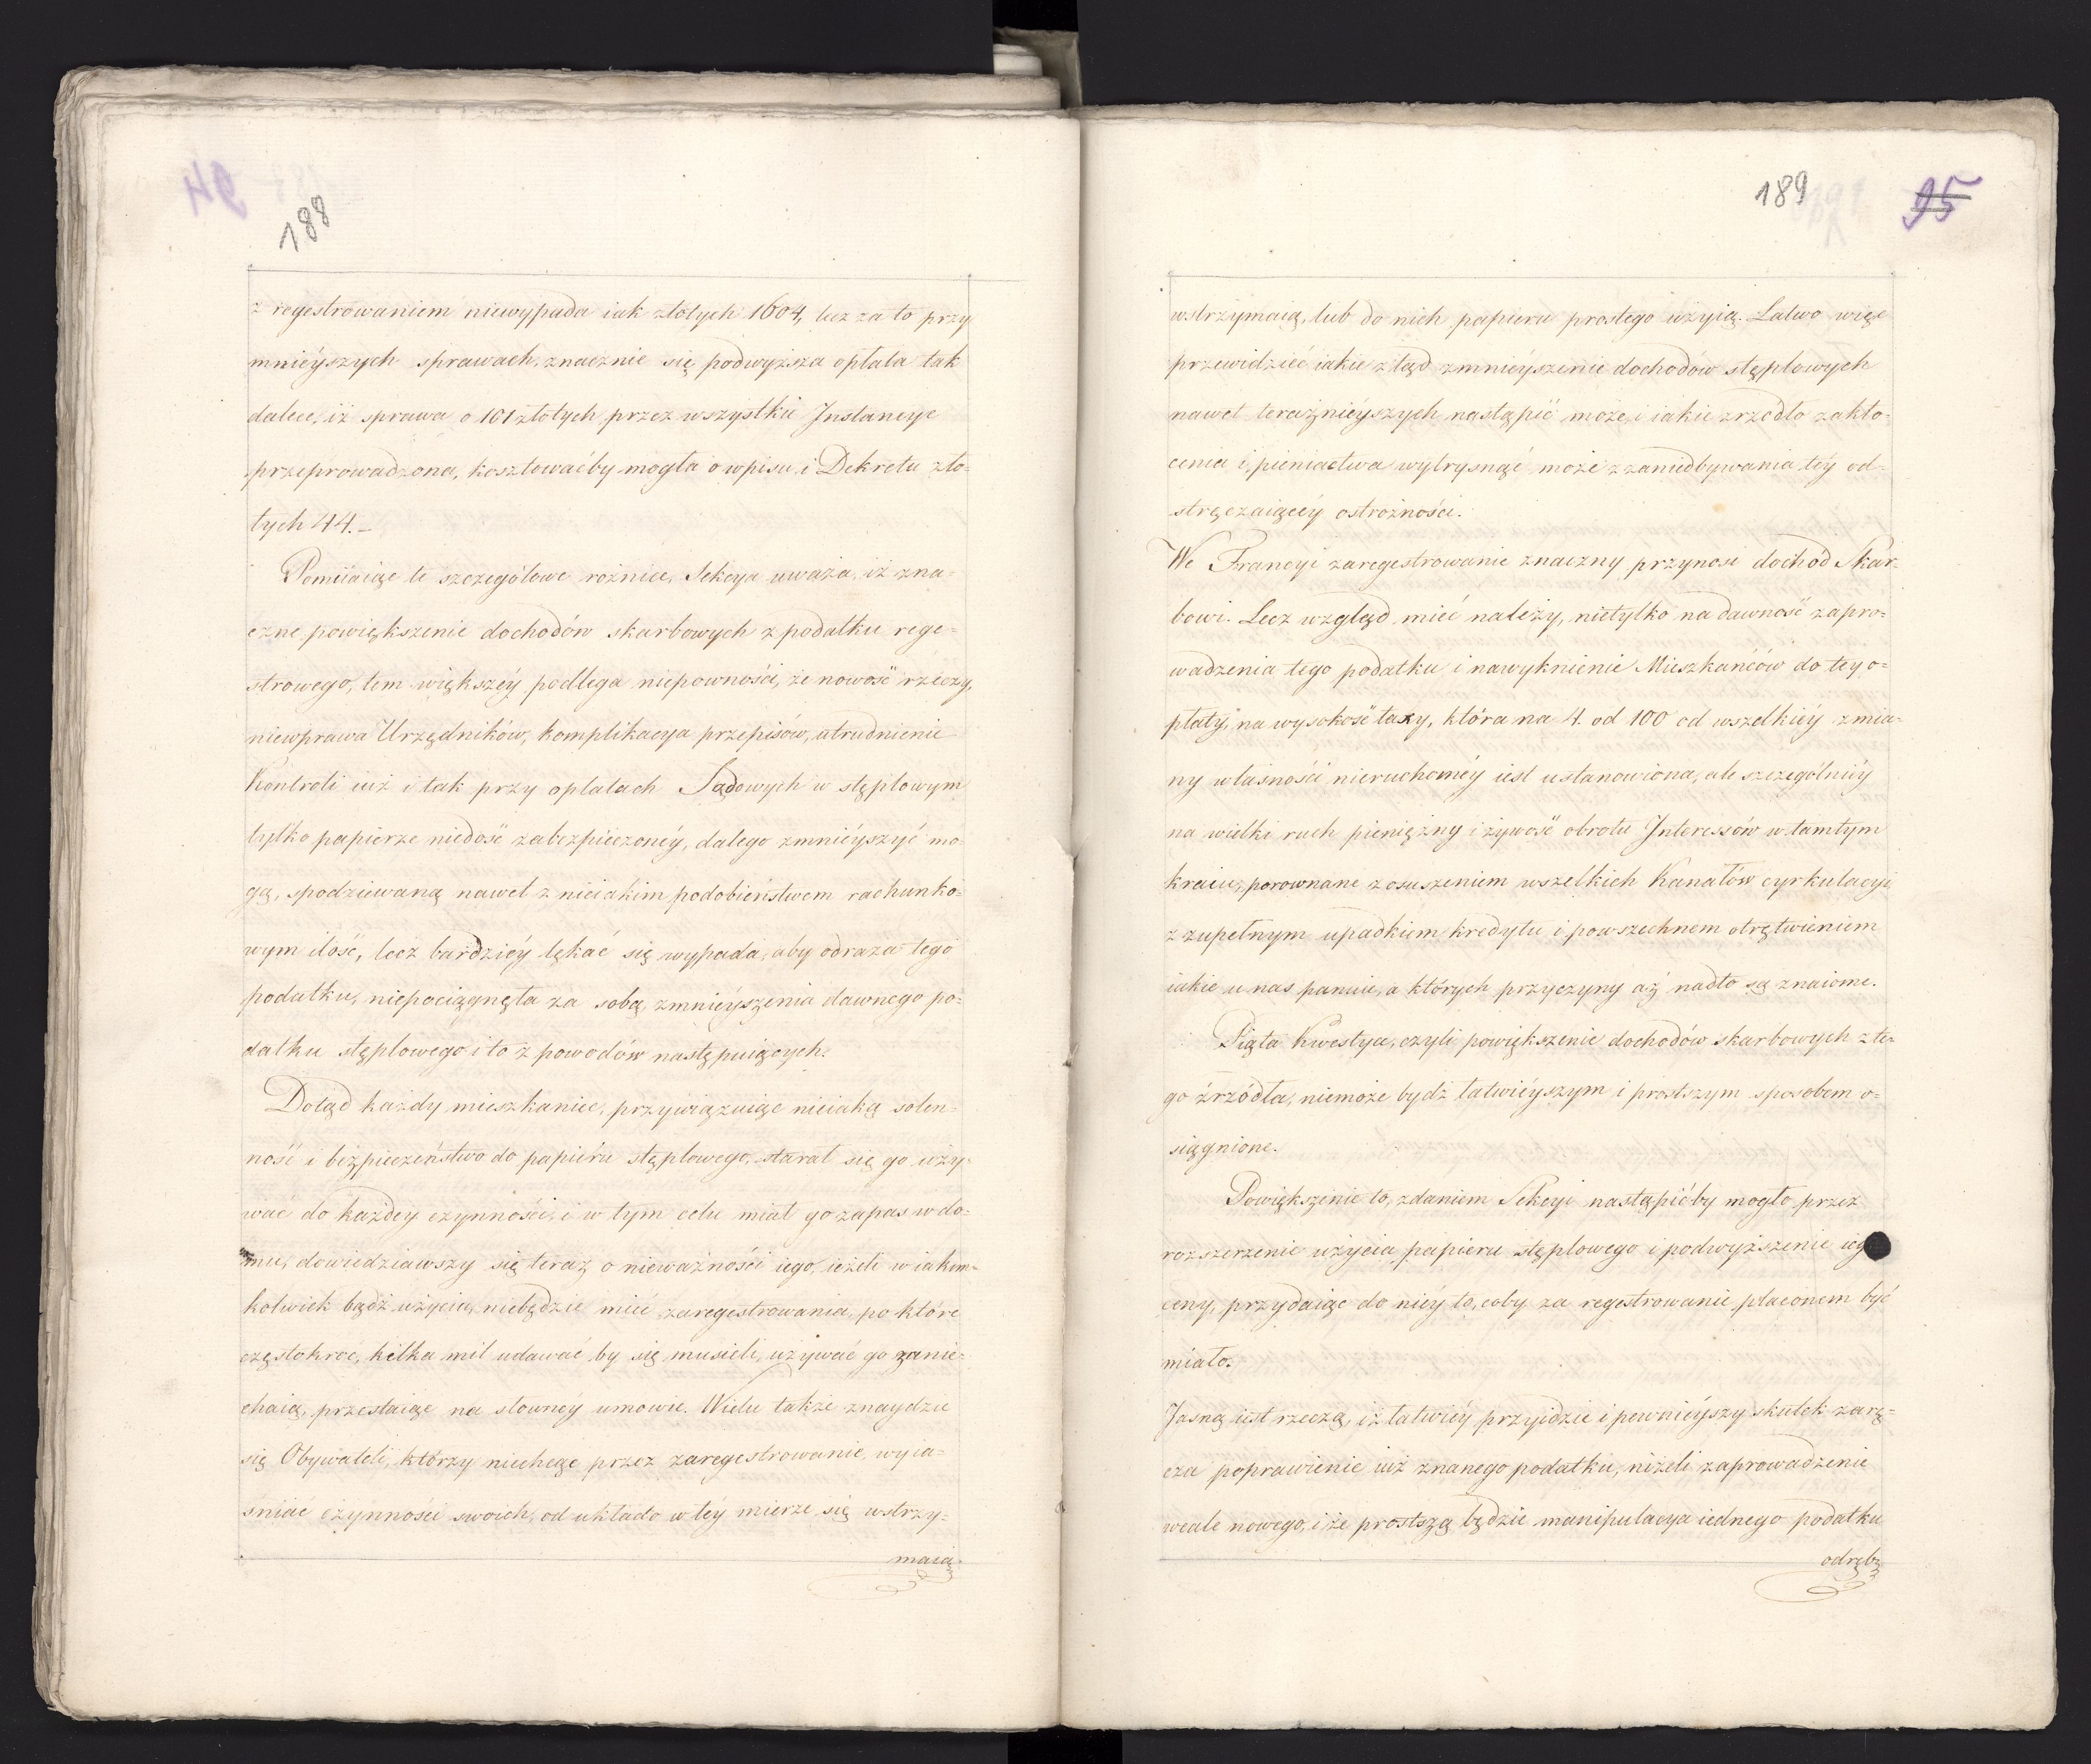 188
z regestrowaniem niewypada iak złotych 1604, lecz za to przy
mnieyszych sprawach, znacznie się podwyższa opłata tak
dalece, iż sprawa o 101 złotych przez wszystkie Instancye
przeprowadzona, kosztowaćby mogła o wpisu i Dekretu zło-
tych 44.-
Pomiiaiąc te szczegółowe rożnice, Sekcya uważa, iż zna-
czne powiększenie dochodów skarbowych z podatku rege-
strowego, tem większéy podlega niepewności, że nowość rzeczy,
niewprawa Urzędników, komplikacya przepisów, utrudnienie
Kontroli iuż i tak przy opłatach Sądowych w stęplowym
tylko papierze niedość zabezpieczonéy, dalego zmniéyszyć mo-
gą, spodziewaną nawet z nieiakim podobieństwem rachunko-
wym ilość, lecz bardziéy lękać się wypada, aby odraza tego
podatku, niepociągnęta za sobą, zmnieyszenia dawnego po-
datku stęplowego i to z powodów następuiących:
Dotąd każdy mieszkaniec, przywiązuiąc nieiaką solen-
ność i bezpieczeństwo do papieru stęplowego, starał się go uży-
wać do każdey czynności, i w tym celu miał go zapas w do-
mu, dowiedziawszy się teraz o nieważności iego, ieżeli w iakim-
kolwiek bądź użyciu, niebędzie mieć zaregestrowania, po które
częstokroć, kilka mil udawać by się musieli, używać go zanie-
chaią, przestaiąc na słownéy umowie. Wielu także znaydzie
się Obywateli, którzy niechcąc przez zaregestrowanie, wyia-
śniać czynności swoich, od układo w téy mierze się wstrzy-
maią
189 95
wstrzymaią, lub do nich papieru prostego użyią. Łatwo więc
przewidzieć iakie z tąd zmniéyszenie dochodów stęplowych
nawet teraźnieyszych nastąpić może, i iakie zrzodło zakło-
cenia i pieniactwa wytrysnąć może z zaniedbywania téy od-
stręczaiącéy ostrożności.
We Francyi zaregestrowanie znaczny przynosi dochod Skar-
bowi. Lecz wzgląd mieć należy, nietylko na dawność zapro-
wadzenia tego podatku i nawyknienie Mieszkańców do tey o-
płaty, na wysokość taxy, która na 4. od 100 od wszelkiéy zmia-
ny własności nieruchoméy iest ustanowiona, ale szczególniéy
na wielki ruch pieniężny i żywość obrotu Interessów w tamtym
kraiu, porownane z osuszeniem wszelkich Kanałów cyrkulacyi,
z zupełnym upadkiem kredytu i powszechnem otrętwieniem
iakie u nas panuie, a których przyczyny aż nadto są znaiome.
Piąta Kwestya, czyli powiększenie dochodów skarbowych z te-
go źrzódła, niemoże bydź łatwiéyszym i prostszym sposobem o-
siągnione.
Powiększenie to, zdaniem Sekcyi nastąpićby mogło przez
rozszerzenie użycia papieru stęplowego i podwyższenie ieg
ceny, przydaiąc do niéy to, coby za regestrowanie płaconem być
miało.
Jasną iest rzeczą, iż łatwiéy przyidzie i pewniéyszy skutek zarę-
cza poprawienie iuż znanego podatku, niżeli zaprowadzenie
wcale nowego, i że prostszą będzie manipulacya iednego podatku
odrębą